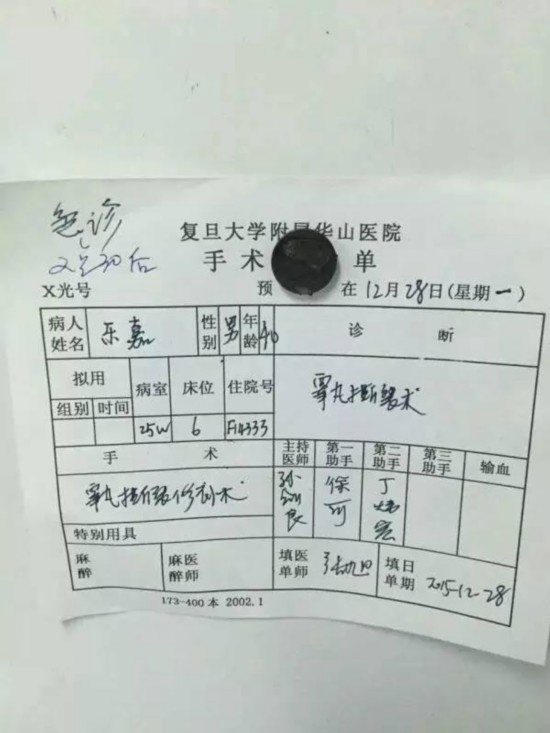 急诊
复旦大学附属华山医院
2:30后
手术 单
X光号 预 在12月28日(星期一)
病人姓名 乐嘉 性别 男 年龄 40 诊断
拟用 病室 床位 住院号
组别 时间 25W 6
睾丸扭断裂术
手术 主持医师 第一助手 第二助手 第三助手 输血
睾丸扭断裂修补术
徐可
特别用具
麻醉 麻醉医师 填单医师 张旭 填单日期 2015-12-28
173-400本 2002.1